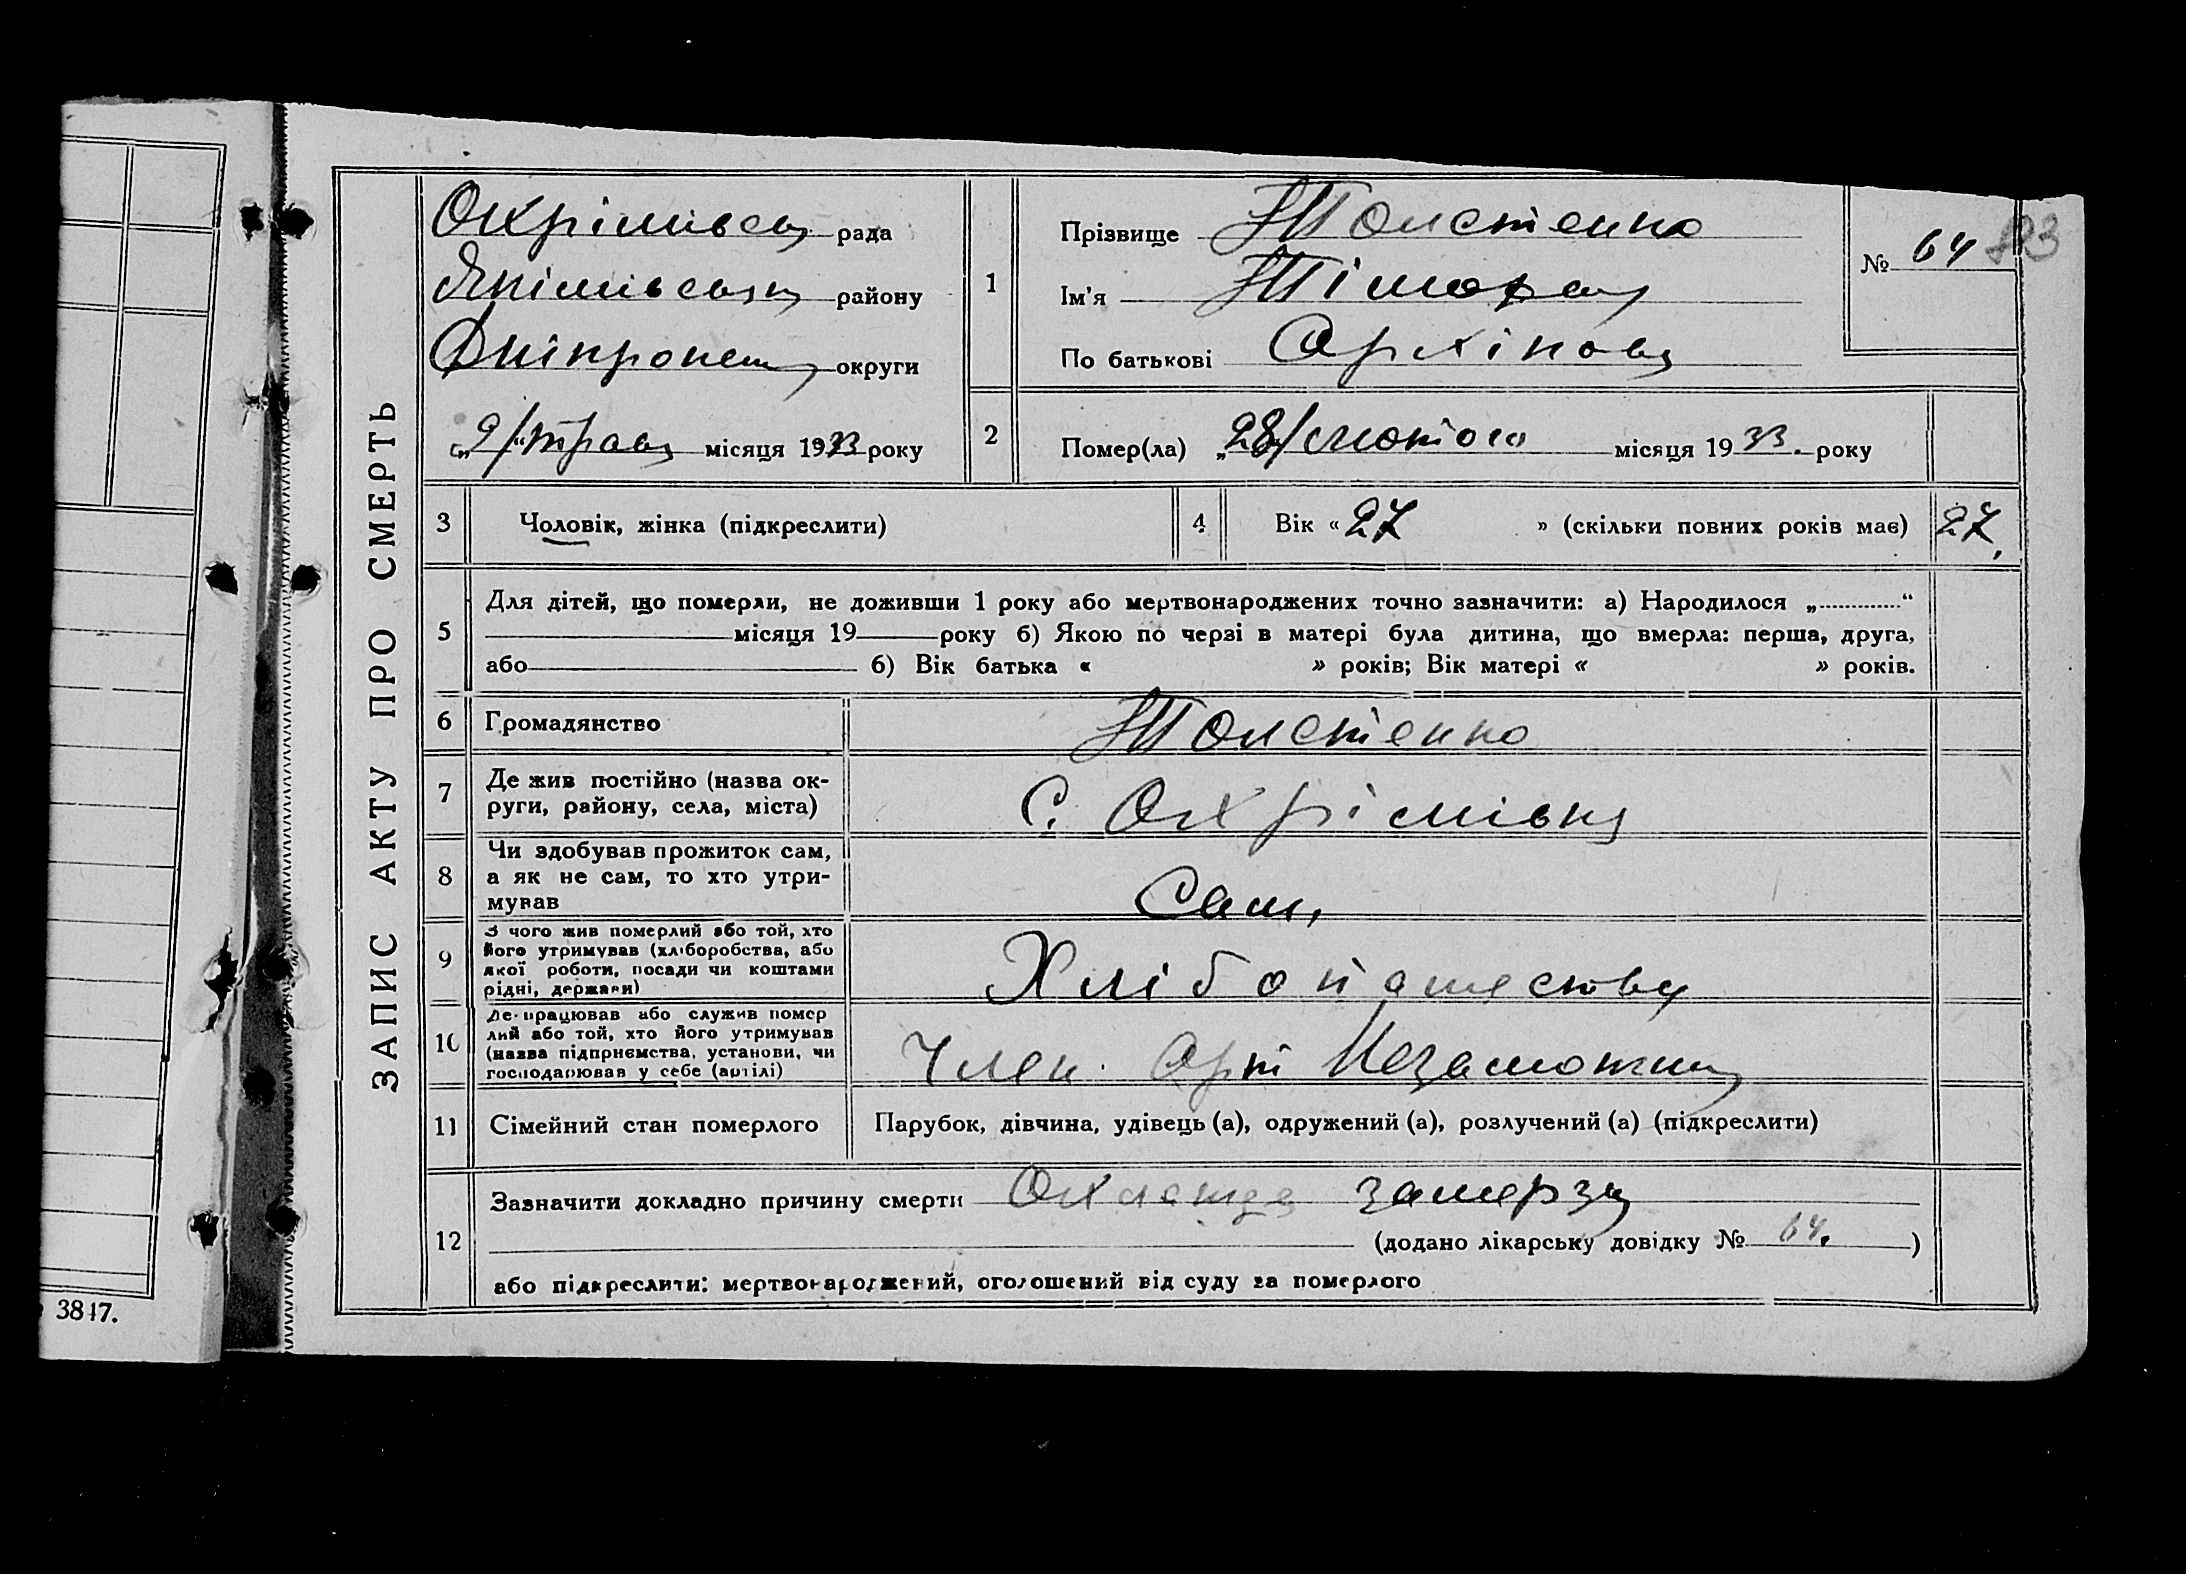 ЗАПИС АКТУ ПРО СМЕРТЬ
Охрімівськ рада
Якімівськ району
Дніпропет округи
„2/“ трав місяця 1933 року
1
Прізвище Толстенко
Ім'я
По батькові Архіпов
№ 64
2
Помер(ла) „28/ лютого місяця 1933. року
3 Чоловік, жінка (підкреслити)
4 Вік « 27 » (скільки повних років має) 27,
5
Для дітей, що померли, не доживши 1 року або мертвонароджених точно зазначити: а) Народилося „ “
місяця 19 року б) Якою по черзі в матері була дитина, що вмерла: перша, друга,
або б) Вік батька « » років; Вік матері « » років.
6 Громадянство Толстенко
7
Де жив постійно (назва ок-
руги, району, села, міста)
С. Охрімівка
8
Чи здобував прожиток сам,
а як не сам, то хто утри-
мував
Сам,
9
З чого жив померлий або той, хто
його утримував (хліборобства, або
якої роботи, посади чи коштами
рідні, держави)
10
Де працював або служив помер
лий або той, хто його утримував
(назва підприємства, установи, чи
господарював у себе (артілі)
Член Арт Незаможник
11 Сімейний стан померлого Парубок, дівчина, удівець (а), одружений (а), розлучений (а) (підкреслити)
12
Зазначити докладно причину смерти замерз
(додано лікарську довідку № 64. )
або підкреслити: мертвонароджений, оголошений від суду за померлого
3847.